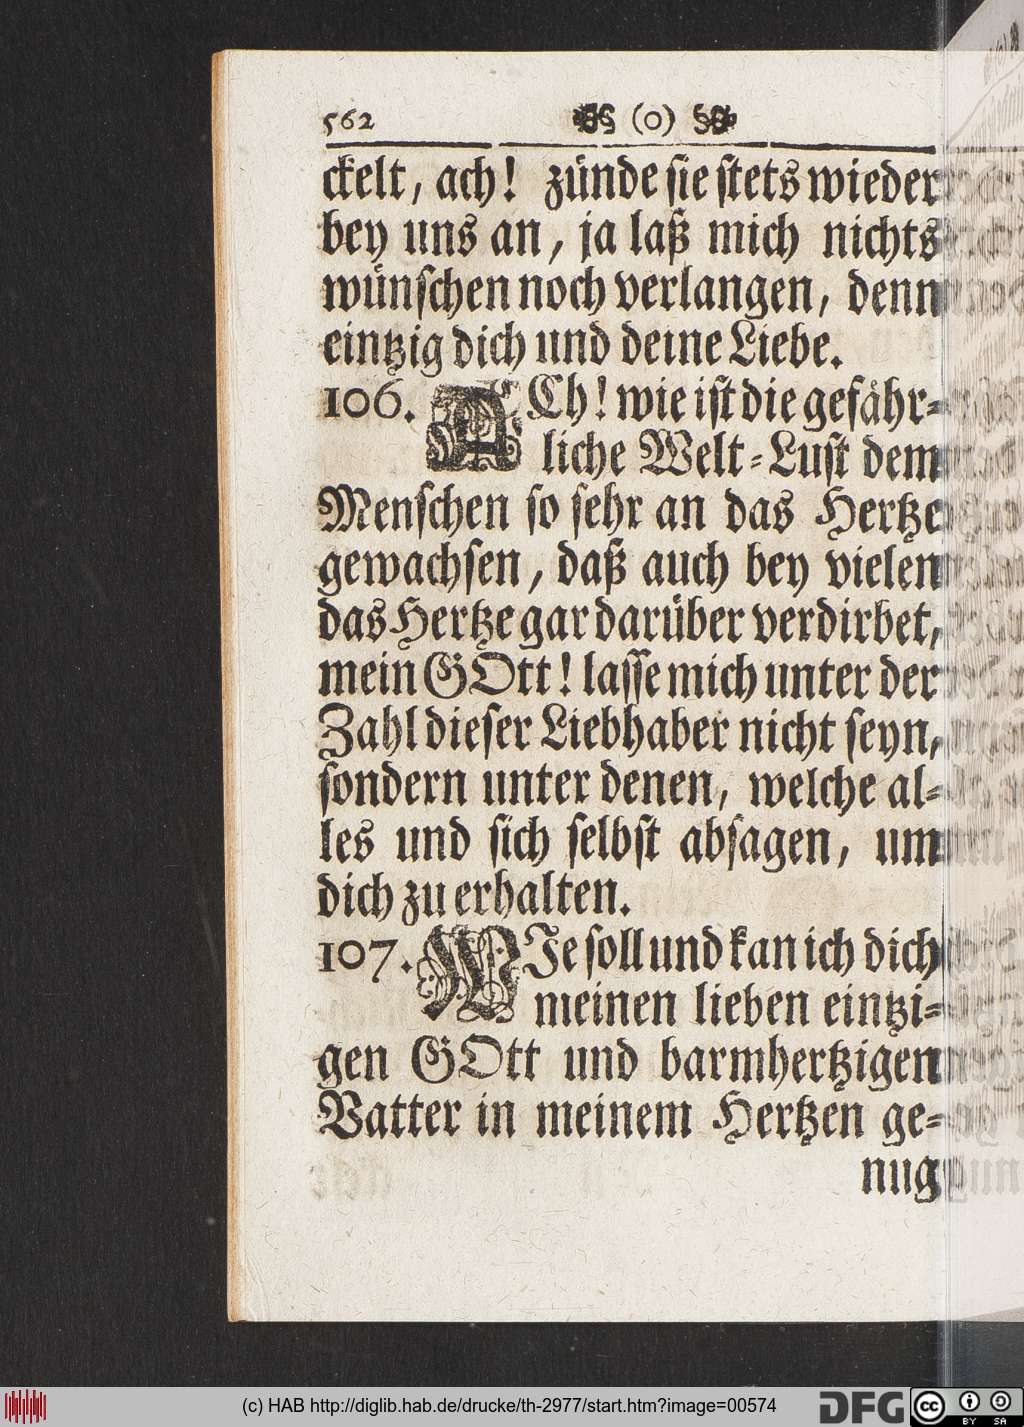 562 (o)
ckelt, ach! zünde sie stets wieder
bey uns an, ja laß mich nichts
wünschen noch verlangen, denn
eintzig dich und deine Liebe.
106. ACh! wie ist die gefähr-
liche Welt-Lust dem
Menschen so sehr an das Hertze
gewachsen, daß auch bey vielen
das Hertze gar darüber verdirbet,
mein GOtt! lasse mich unter der
Zahl dieser Liebhaber nicht seyn,
sondern unter denen, welche al-
les und sich selbst absagen, um
dich zu erhalten.
107. WJe soll und kan ich dich
meinen lieben eintzi-
gen GOtt und barmhertzigen
Vatter in meinem Hertzen ge-
nug
(c) HAB http://diglib.hab.de/drucke/th-2977/start.htm?image=00574
DFG
cc BY SA